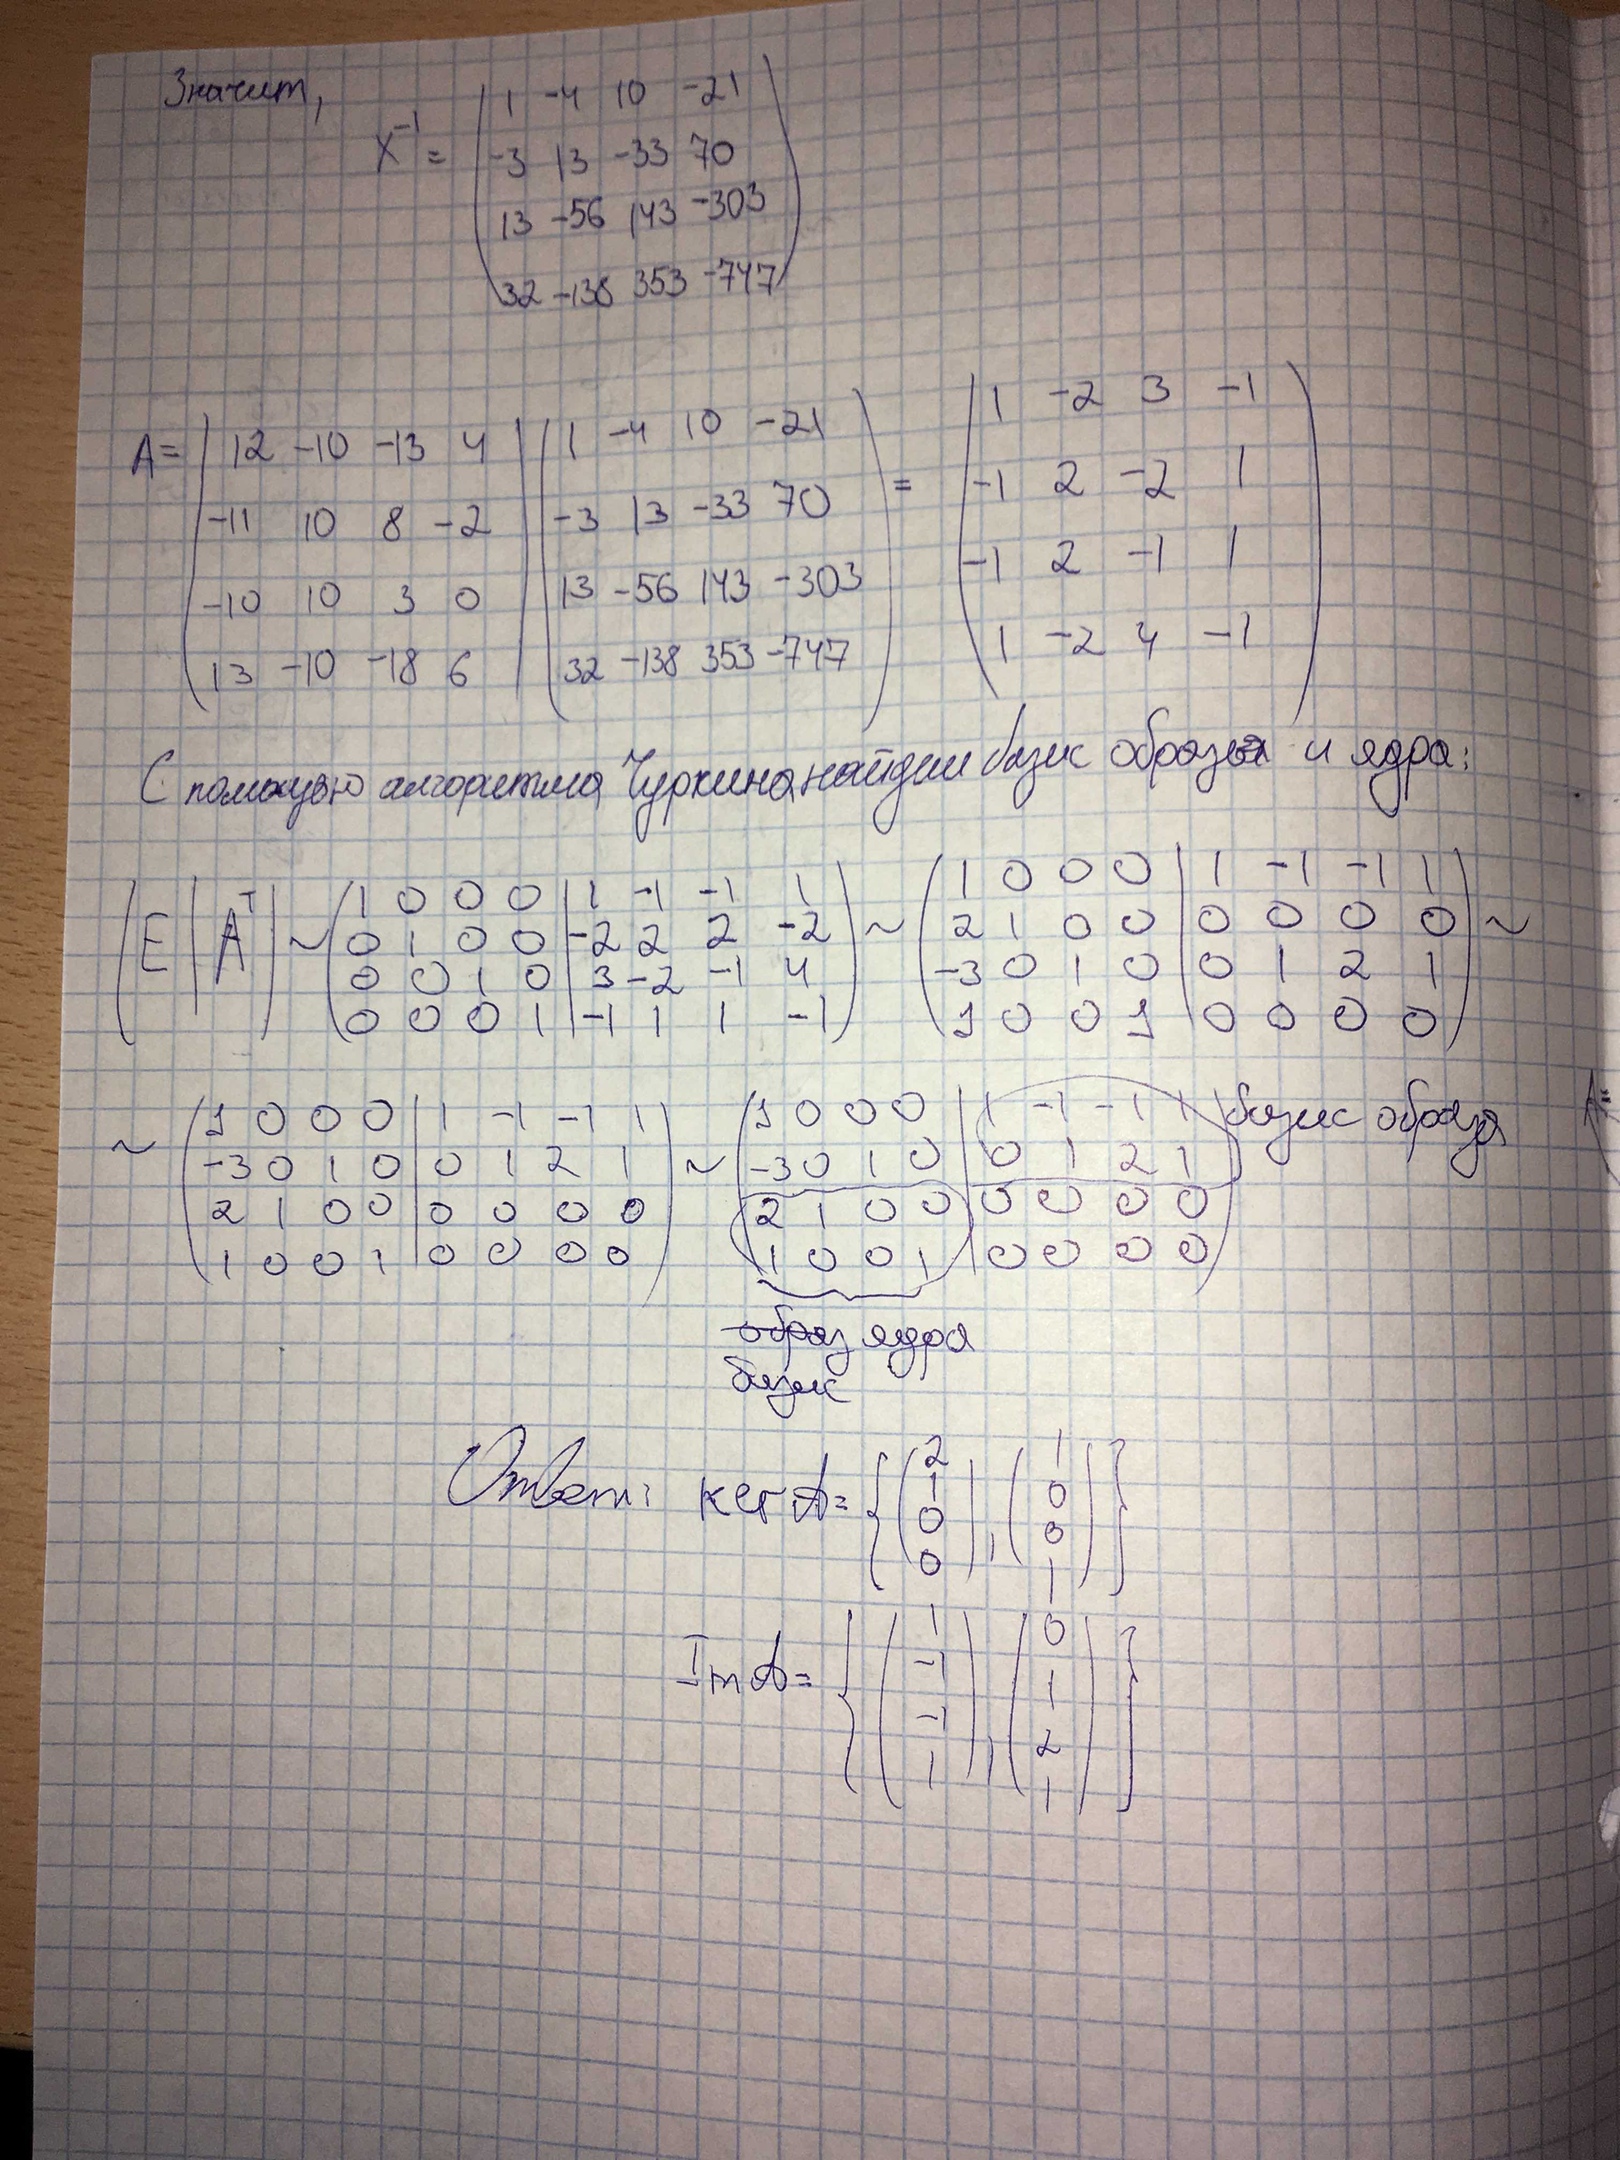 Значит,
X⁻¹ =
1 -4 10 -21
-3 13 -33 70
13 -56 143 -303
32 -138 353 -747
A =
12 -10 -13 4
-11 10 8 -2
-10 10 3 0
13 -10 -18 6
1 -4 10 -21
-3 13 -33 70
13 -56 143 -303
32 -138 353 -747
=
1 -2 3 -1
-1 2 -2 1
-1 2 -1 1
1 -2 4 -1
С помощью алгоритма Чуркина найдем базис образа и ядра:
(E | Aᵀ) ~
1 0 0 0 | 1 -1 -1 1
0 1 0 0 | -2 2 2 -2
0 0 1 0 | 3 -2 -1 4
0 0 0 1 | -1 1 1 -1
~
1 0 0 0 | 1 -1 -1 1
2 1 0 0 | 0 0 0 0
-3 0 1 0 | 0 1 2 1
1 0 0 1 | 0 0 0 0
~
~
1 0 0 0 | 1 -1 -1 1
-3 0 1 0 | 0 1 2 1
2 1 0 0 | 0 0 0 0
1 0 0 1 | 0 0 0 0
~
1 0 0 0 | 1 -1 -1 1
-3 0 1 0 | 0 1 2 1
2 1 0 0 | 0 0 0 0
1 0 0 1 | 0 0 0 0
базис образа
образ ядра
базис
Ответ: ker A = { (2 1 0 0), (1 0 0 1) }
Im A = { (1 -1 -1 1), (0 1 2 1) }
A=